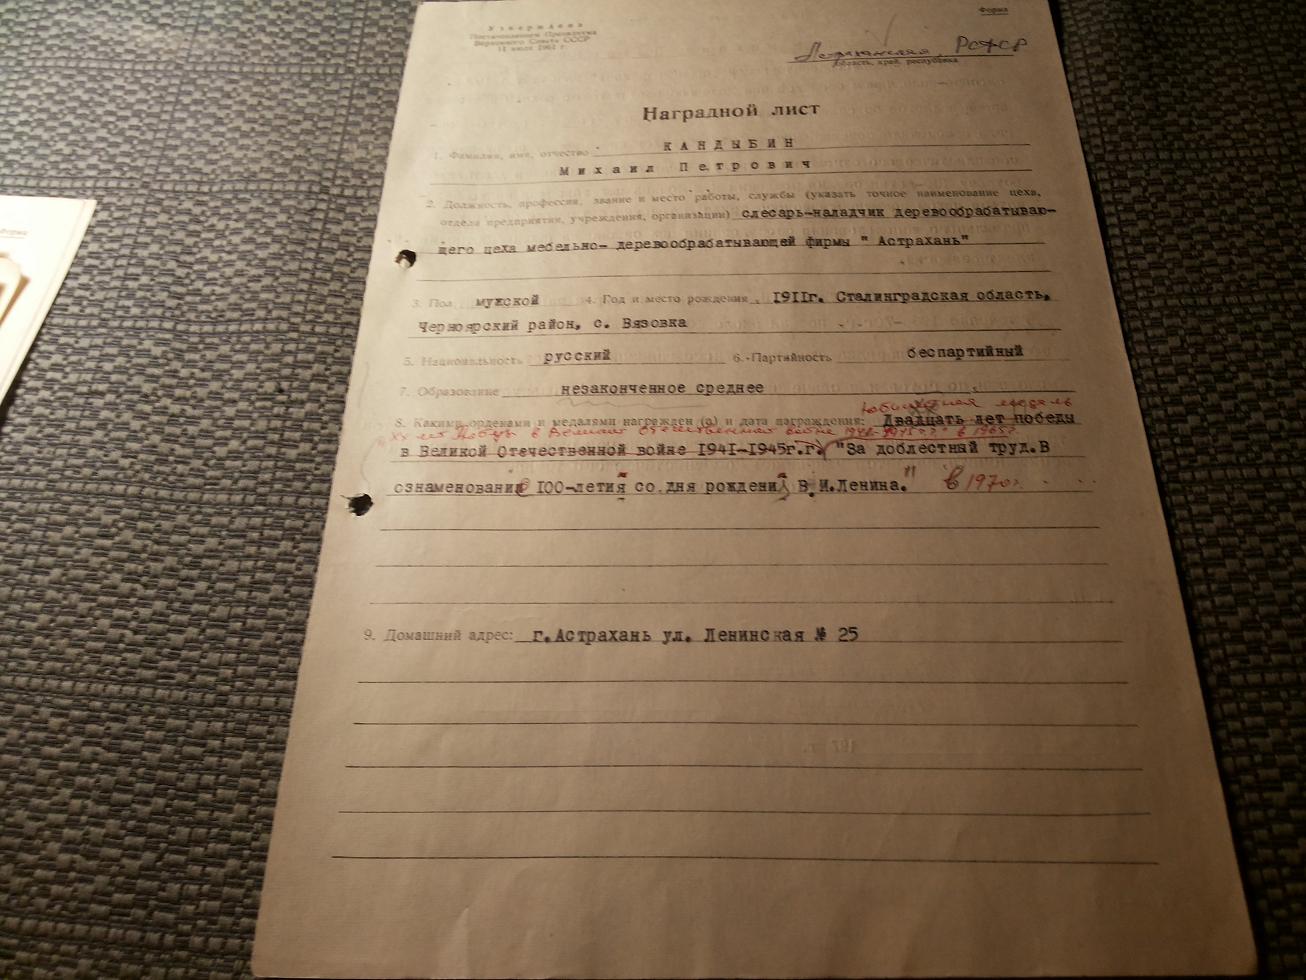 Форма
Утверждена
Постановлением Президиума
Верховного Совета СССР
11 июля 1961 г.
Астраханская, РСФСР
область, край, республика
Наградной лист
1. Фамилия, имя, отчество КАНДЫБИН
Михаил Петрович
2. Должность, профессия, звание и место работы, службы (указать точное наименование цеха,
отдела предприятия, учреждения, организации) слесарь-наладчик деревообрабатываю-
щего цеха мебельно- деревообрабатывающей фирмы " Астрахань"
3. Пол мужской 4. Год и место рождения 1911г. Сталинградская область,
Черноярский район, с. Вязовка
5. Национальность русский 6. Партийность беспартийный
7. Образование незаконченное среднее
Юбилейная медаль
8. Какими орденами и медалями награжден (а) и дата награждения: Двадцать лет победы
XX лет Победы в Великой Отечественной войне 1941-1945г.г." в 1965г.
в Великой Отечественной войне 1941-1945г.г. "За доблестный труд.В
ознаменование 100-летия со дня рождения В.И.Ленина." в 1970г.
9. Домашний адрес: г.Астрахань ул. Ленинская № 25
Форма